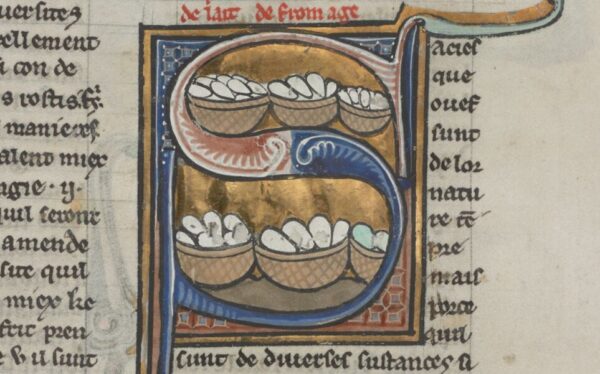 uersites
ellement
i con de
s rostis. &
manieres
alent miex
ngie . ij .
quil seront
amende
site quil
miex ke
stit pren
e v il sunt
de lait de fromage
Sacies
que
ouef
sunt
de lor
natu
re tē
pre
mais
porce
quil
sunt de diuerses sustances si